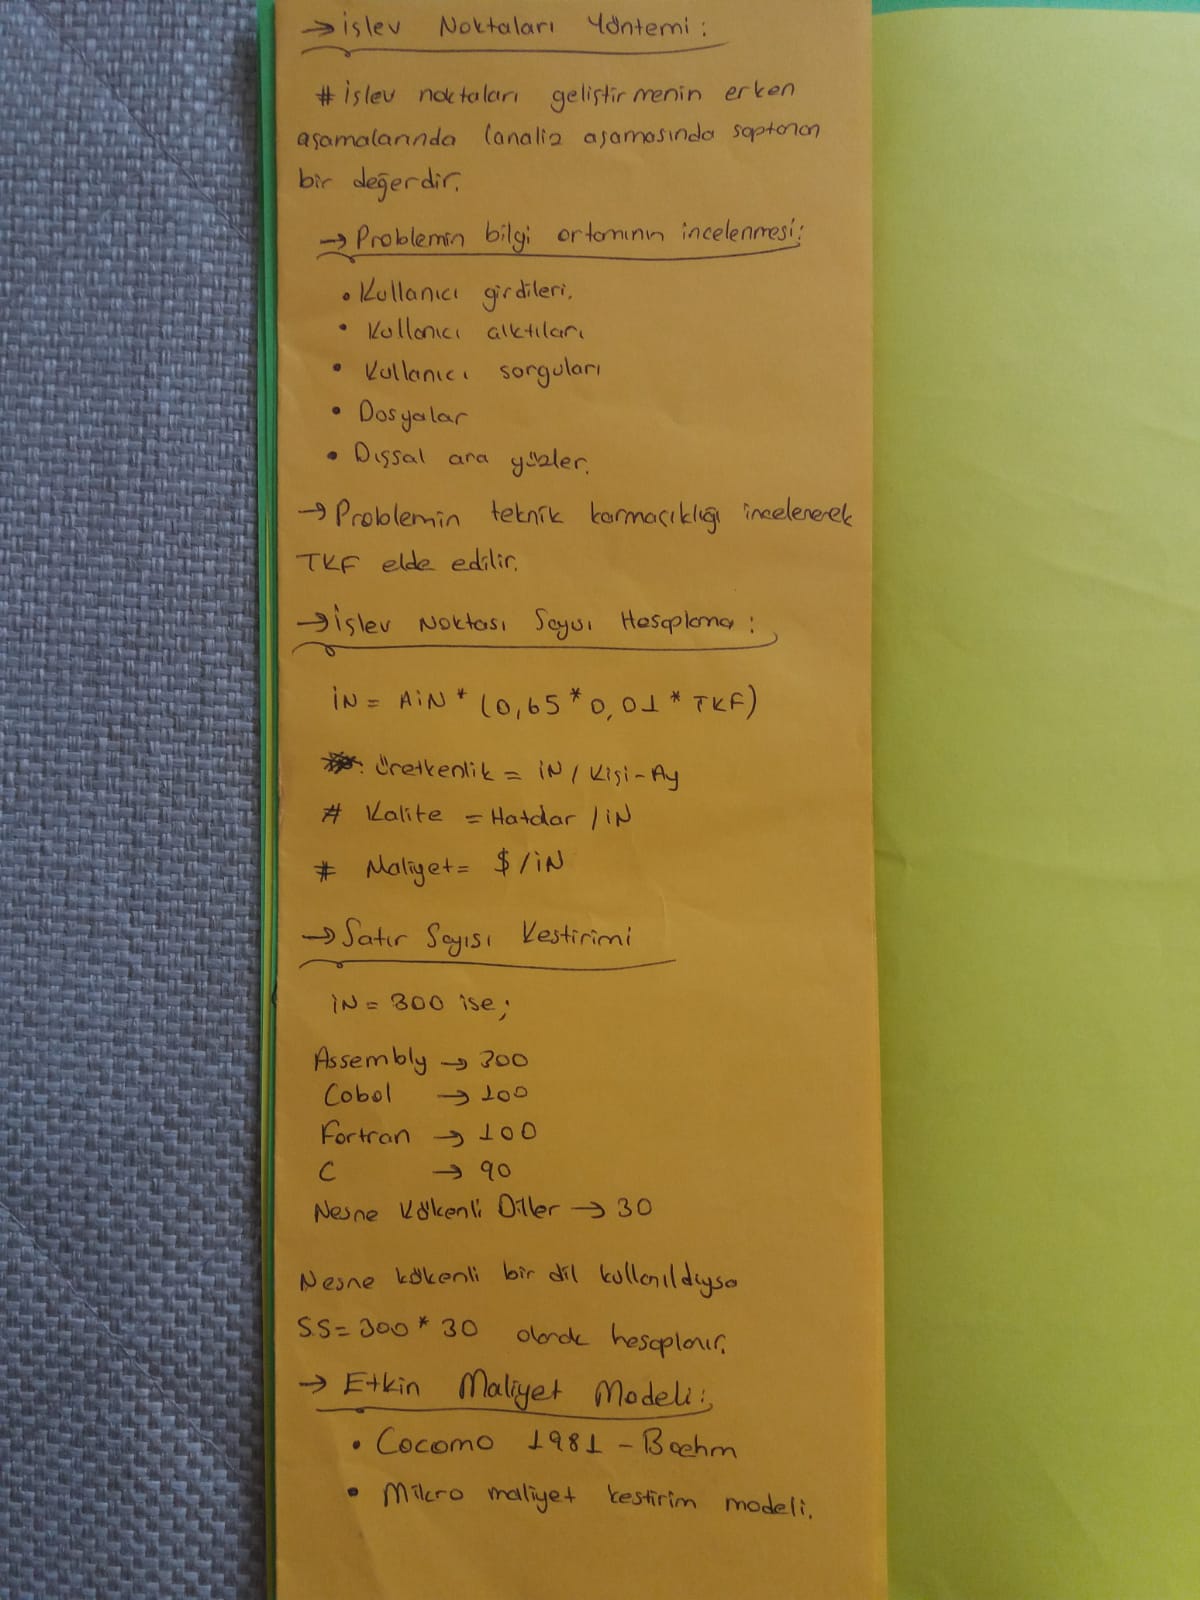 → İşlev Noktaları Yöntemi:
# İşlev noktaları geliştirmenin erken
aşamalarında (analiz aşamasında saptanan
bir değerdir.
→ Problemin bilgi ortamının incelenmesi:
• Kullanıcı girdileri.
• Kullanıcı çıktıları
• Kullanıcı sorguları
• Dosyalar
• Dışsal ara yüzler.
→ Problemin teknik karmaçıklığı incelenerek
TKF elde edilir.
→ İşlev Noktası Sayısı Hesaplama:
İN = AİN * (0,65 * 0,01 * TKF)
Üretkenlik = İN / Kişi-Ay
# Kalite = Hatalar / İN
# Maliyet = $ / İN
→ Satır Sayısı Kestirimi
İN = 300 ise;
Assembly → 300
Cobol → 100
Fortran → 100
C → 90
Nesne Kökenli Diller → 30
Nesne kökenli bir dil kullanıldıysa
SS = 300 * 30 olarak hesaplanır.
→ Etkin Maliyet Modeli:
• Cocomo 1981 - Boehm
• Mikro maliyet kestirim modeli.